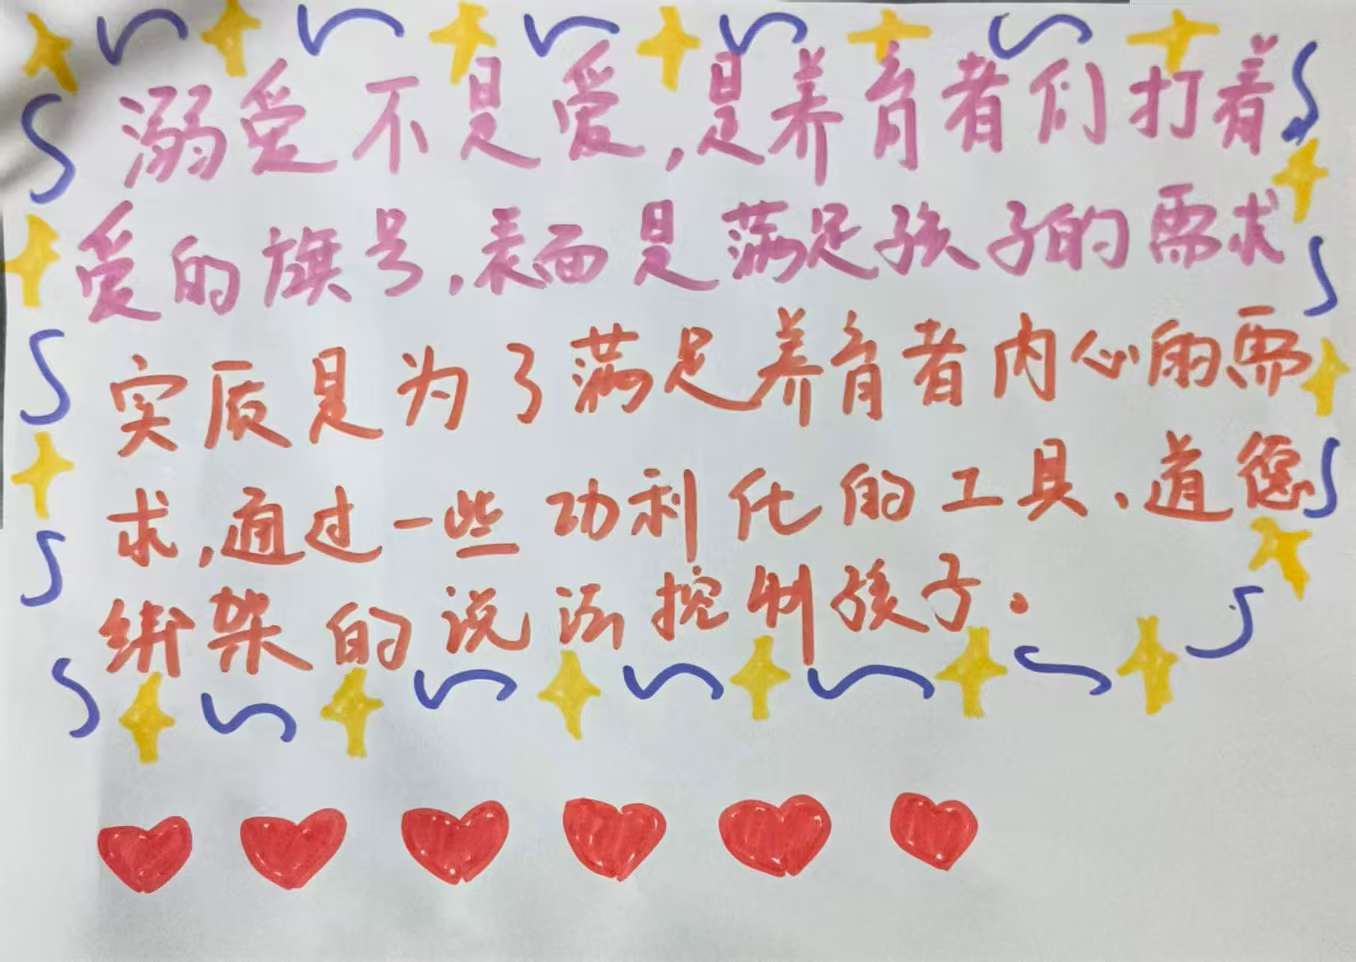 溺爱不是爱,是养育者们打着
爱的旗号,表面是满足孩子的需求
实质是为了满足养育者内心的需
求,通过一些功利化的工具、道德
绑架的说法控制孩子.